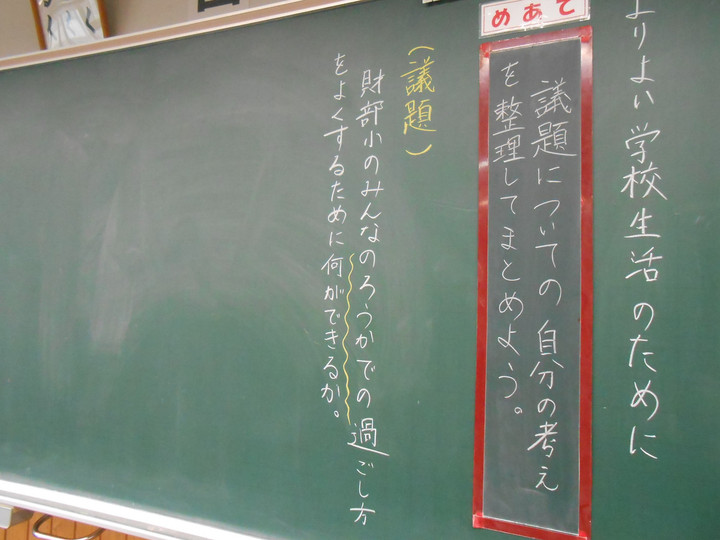 よりよい学校生活のために
めあて
議題についての自分の考え
を整理してまとめよう。
(議題)
財部小のみんなのろうかでの過ごし方
をよくするために何ができるか。